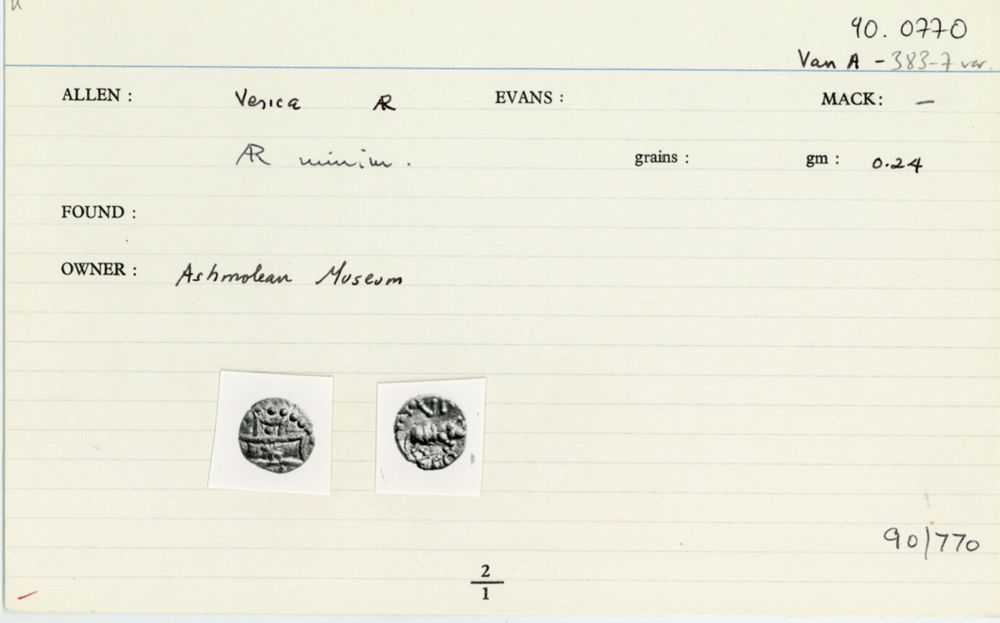 90. 0770
Van A - 383-7 var.
ALLEN : Verica AR EVANS : MACK: —
AR minim. grains : gm : 0.24
FOUND :
OWNER : Ashmolean Museum
90/770
2
1